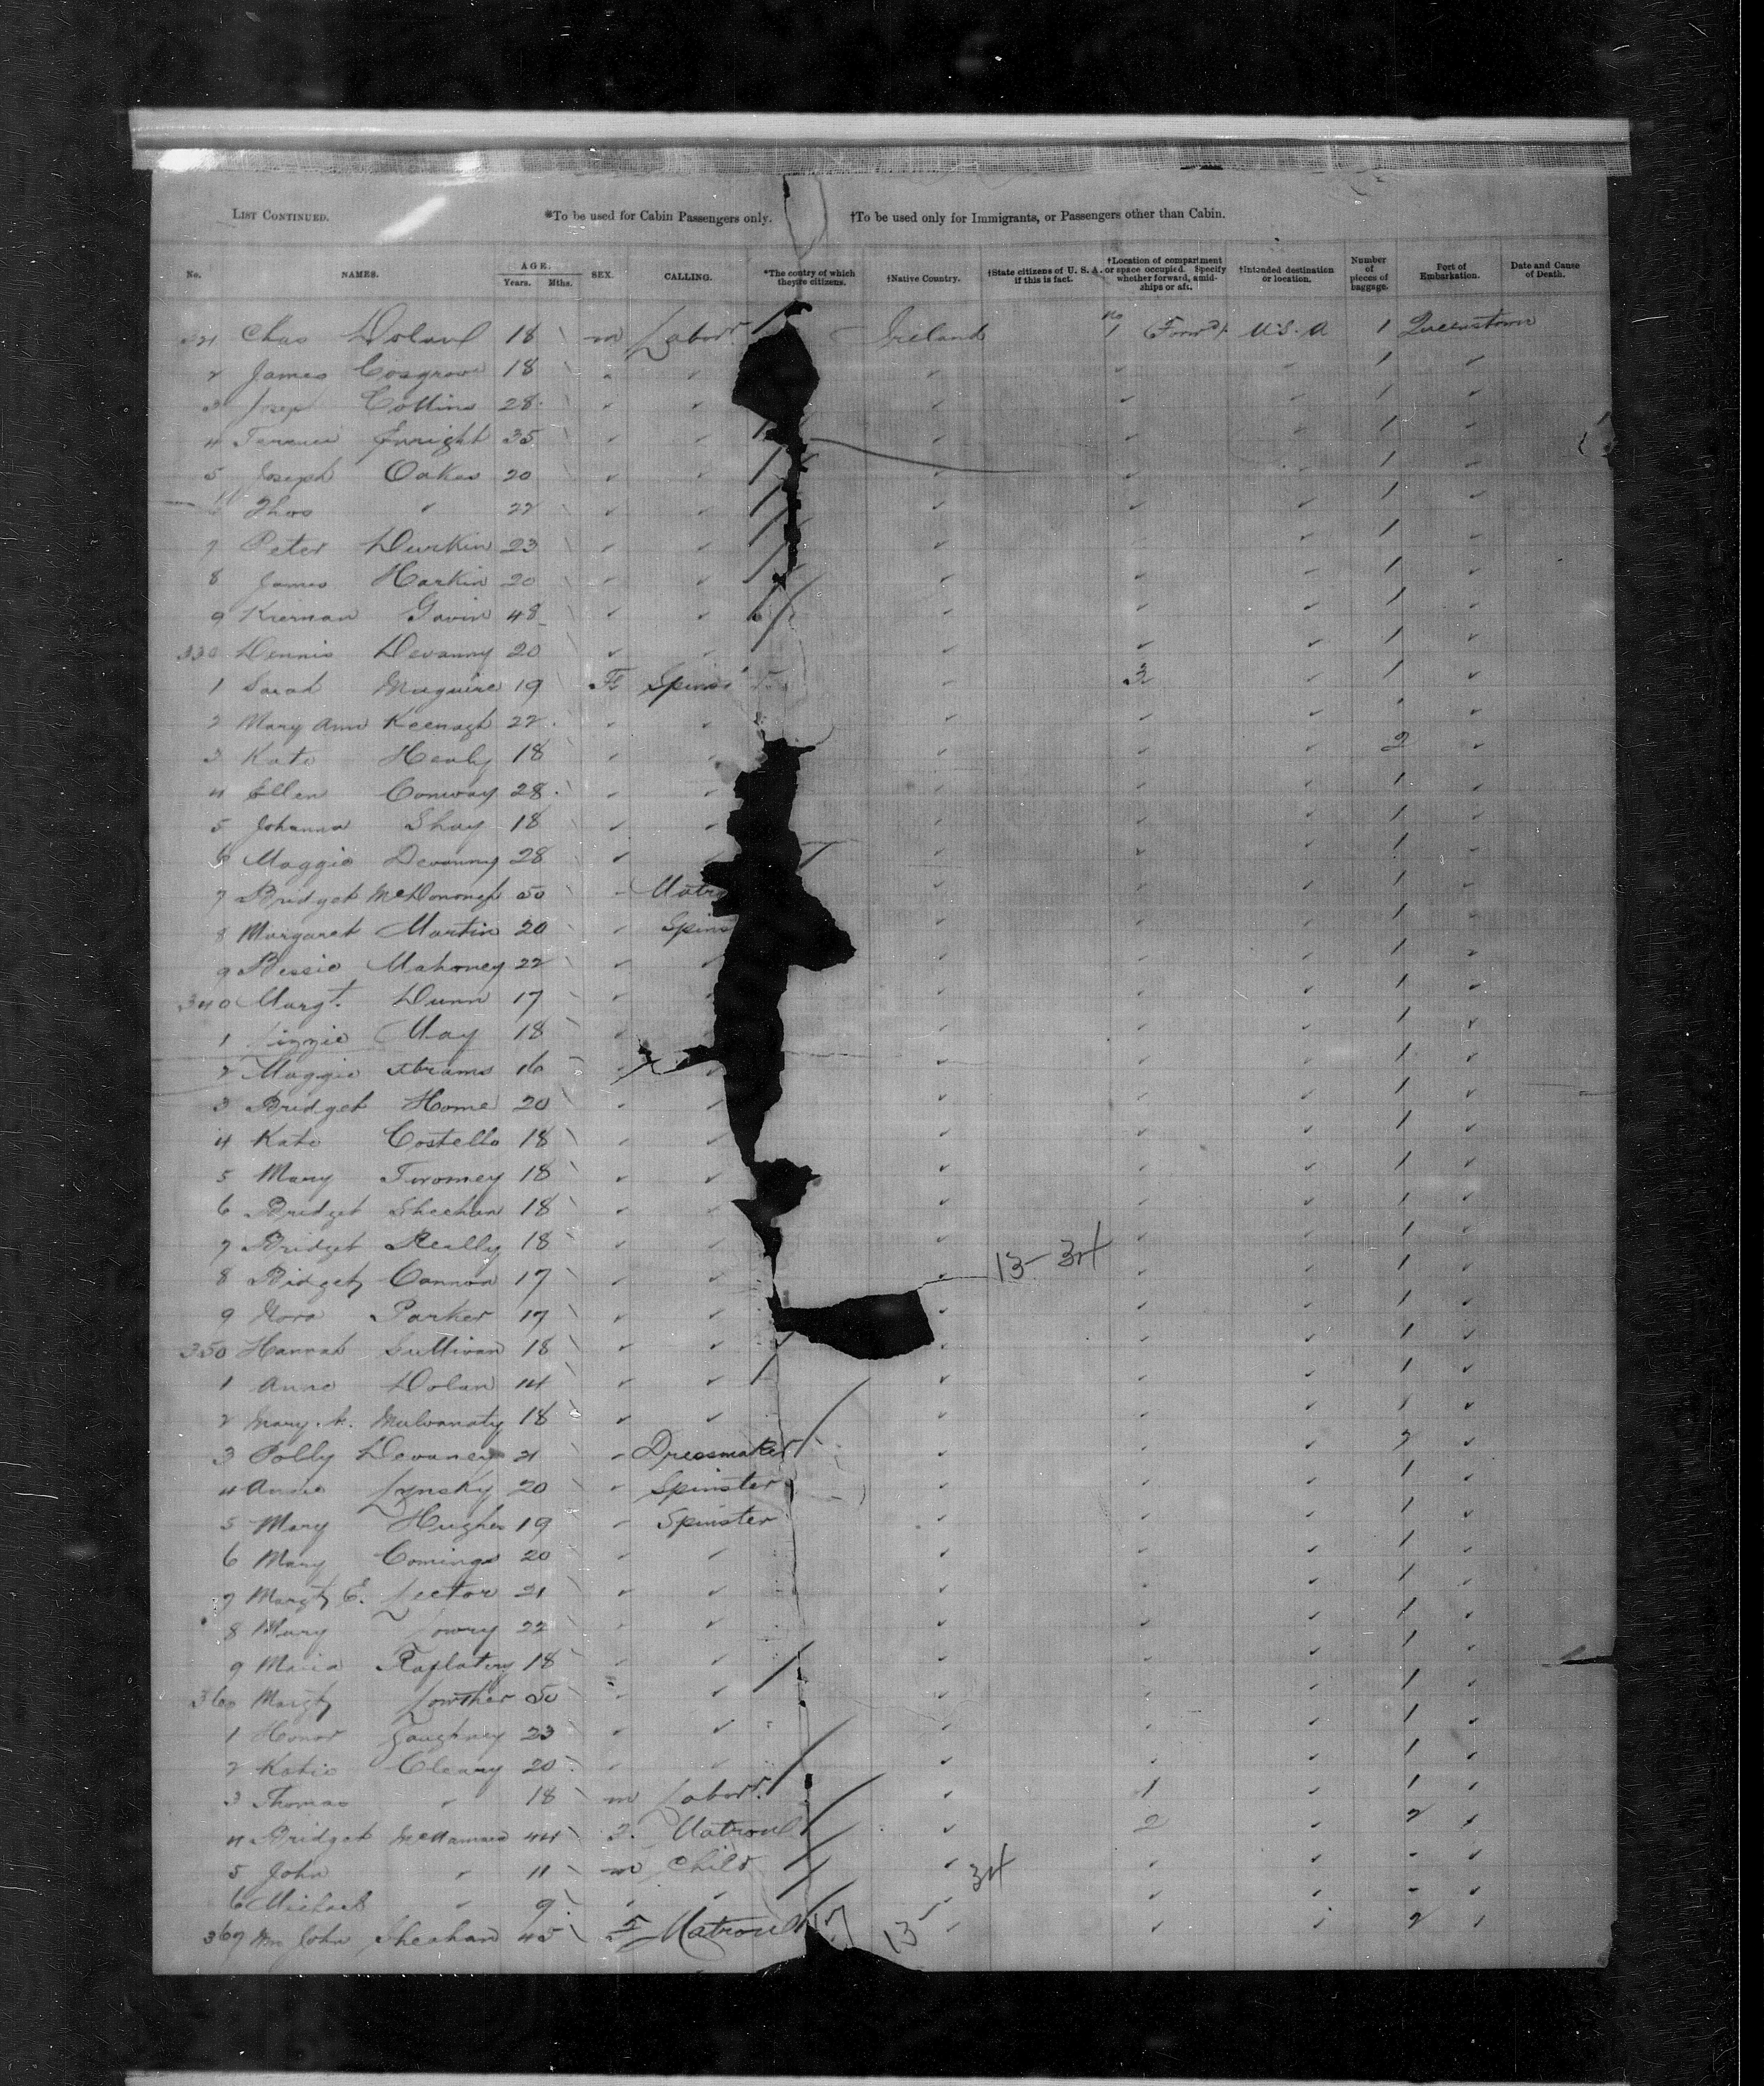 LIST CONTINUED. *To be used for Cabin Passengers only. †To be used only for Immigrants, or Passengers other than Cabin.
No. NAMES. AGE. Years. Mths. SEX. CALLING. *The coutry of which they're citizens. †Native Country. †State citizens of U. S. A. if this is fact. †Location of compartment or space occupied. Specify whether forward, amidships or aft. †Intended destination or location. Number of pieces of baggage. Port of Embarkation. Date and Cause of Death.
321 Chas Dolan 18 m Labor Ireland no 1 Forwd U.S.A 1 Queenstown
2 James Cosgrove 18 ✓ ✓ ✓ 1 ✓
3 Collins 28 ✓ ✓ ✓ ✓ 1 ✓
4 Enright 35 ✓ ✓ ✓ ✓ 1 ✓
5 Joseph Oakes 20 ✓ ✓ ✓ ✓ 1 ✓
6 Thos ✓ 22 ✓ ✓ ✓ ✓ ✓ 1 ✓
7 Peter Durkin 23 ✓ ✓ ✓ 1 ✓
8 James Harkin 20 ✓ ✓ ✓ ✓ 1 ✓
9 Kiernan Gavin 48 ✓ ✓ ✓ ✓ ✓ 1 ✓
330 Dennis Devanny 20 ✓ ✓ ✓ ✓ 1 ✓
1 Sarah Maguire 19 F Spins 3 ✓ 1 ✓
2 Mary Ann Keenagh 22 ✓ ✓ ✓ ✓ ✓
3 Kate Healy 18 ✓ ✓ ✓ ✓ 2 ✓
4 Ellen Conway 28 ✓ ✓ ✓ ✓ ✓ 1 ✓
5 Johanna Shay 18 ✓ ✓ ✓ ✓ ✓ 1 ✓
6 Maggie Devanny 28 ✓ ✓ ✓ ✓ 1 ✓
7 Bridget McDonough 50 Matro ✓ ✓ ✓ 1 ✓
8 Margaret Martin 20 Spins ✓ ✓ ✓ 1 ✓
9 Bessie Mahoney 22 ✓ ✓ ✓ ✓ ✓ 1 ✓
340 Margt. Dunn 17 ✓ ✓ ✓ ✓ 1 ✓
1 Lizzie May 18 ✓ ✓ ✓ ✓ 1 ✓
2 Maggie Abrams 16 ✓ ✓ ✓ ✓ 1 ✓
3 Bridget Horne 20 ✓ ✓ ✓ ✓ 1 ✓
4 Kate Costello 18 ✓ ✓ ✓ ✓ ✓ 1 ✓
5 Mary Twomey 18 ✓ ✓ ✓ ✓ ✓ 1 ✓
6 Bridget Sheehan 18 ✓ ✓ ✓ ✓ ✓ 1 ✓
7 Bridget Reilly 18 ✓ ✓ ✓ ✓ ✓ 1 ✓
8 Bidget Cannon 17 ✓ ✓ ✓ 13-34 ✓ ✓ 1 ✓
9 Nora Parker 17 ✓ ✓ ✓ ✓ ✓ 1 ✓
350 Hannah Sullivan 18 ✓ ✓ ✓ ✓ 1 ✓
1 Anne Dolan 14 ✓ ✓ ✓ ✓ ✓ 1 ✓
2 Mary A. 18 ✓ ✓ ✓ ✓ ✓ 1 ✓
3 Polly Devaney 21 Dressmaker ✓ ✓ 2 ✓
4 Annie Lynsky 20 Spinster ✓ ✓ ✓ 1 ✓
5 Mary Hughes 19 Spinster ✓ ✓ ✓ 1 ✓
6 Mary Comings 20 ✓ ✓ ✓ ✓ ✓ 1 ✓
7 Margt E. Lector 21 ✓ ✓ ✓ ✓ 1 ✓
8 Mary Lowry 22 ✓ ✓ ✓ ✓ ✓ 1 ✓
9 Maria 18 ✓ ✓ ✓ ✓ ✓ 1 ✓
360 Margt Lowther 50 ✓ ✓ ✓ ✓ ✓ 1 ✓
1 Honor Gaughney 23 ✓ ✓ ✓ ✓ ✓ 1 ✓
2 Katie Cleary 20 ✓ ✓ ✓ ✓ ✓ 1 ✓
3 Thomas ✓ 18 m Labor. ✓ 1 ✓ 1 ✓
4 Bridget McNamara 44 F. Matron ✓ 2 ✓ 2 ✓
5 John ✓ 11 m Child ✓ 34 ✓ ✓ - ✓
6 Michael ✓ 9 ✓ ✓ ✓ ✓ ✓ - ✓
367 Mrs John Sheahan 45 F Matron 17 13 ✓ ✓ ✓ 2 ✓